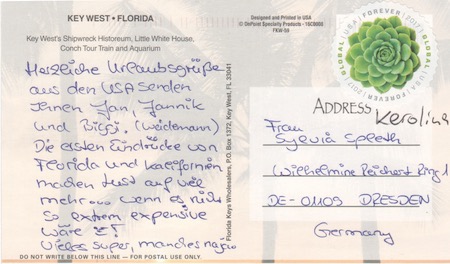 KEY WEST • FLORIDA
Key West's Shipwreck Historeum, Little White House,
Conch Tour Train and Aquarium
Designed and Printed in USA
© DoPoint Specialty Products
FKW-59
GLOBAL USA FOREVER 2017
GLOBAL USA FOREVER 2017
Herzliche Urlaubsgrüße
aus den USA senden
Ihnen Jan, Jannik
und Biggi. (Weidemann)
Die ersten Eindrücke von
Florida und Kalifornien
machen Lust auf viel
mehr... wenn es nicht
so extrem expensive
wäre !
Vieles super, manches naja
DO NOT WRITE BELOW THIS LINE — FOR POSTAL USE ONLY.
Florida Keys Wholesalers, P.O. Box 1372, Key West, FL 33041
ADDRESS
Karolina
Frau
Sylvia Spleth
Wilhelmine Reichard Ring 1
DE-01109 DRESDEN
Germany